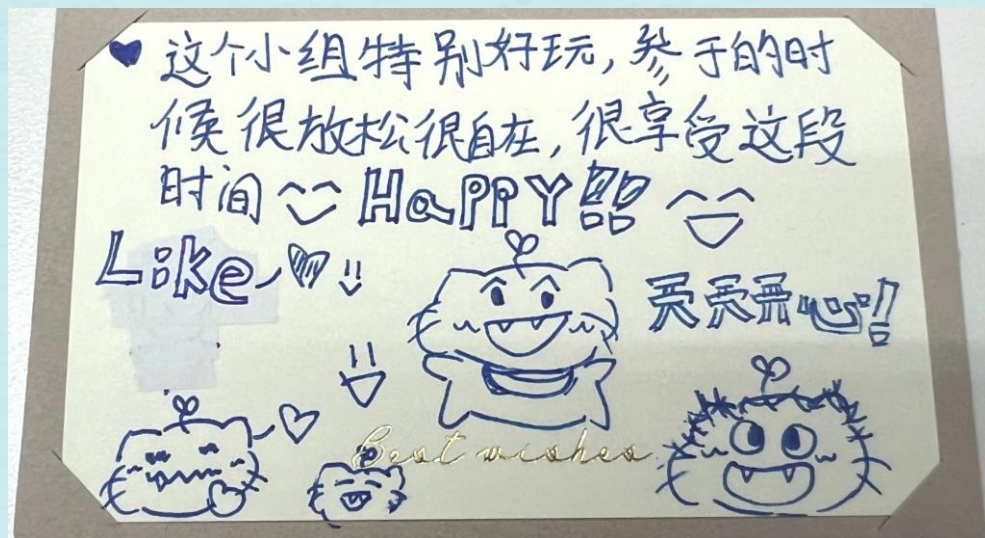 ♥ 这个小组特别好玩,参于的时
候很放松很自在,很享受这段
时间 HaPPY!!
Like
天天开心!!
Best wishes